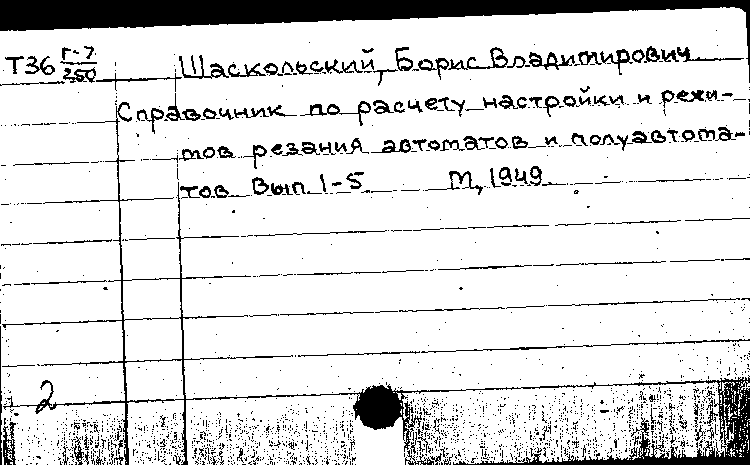 Т36 Г-7/250 Шаскольский, Борис Владимирович
Справочник по расчету настройки и режи-
мов резания автоматов и полуавтома-
тов. Вып. 1-5. М., 1949.
2